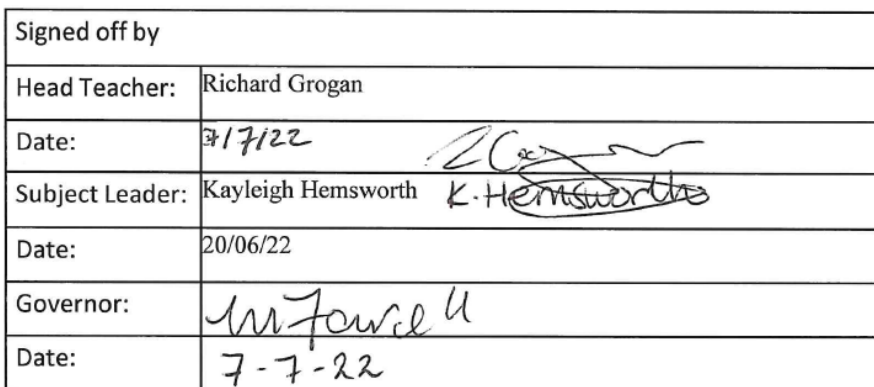 Signed off by
Head Teacher: Richard Grogan
Date: 7/7/22
Subject Leader: Kayleigh Hemsworth K. Hemsworth
Date: 20/06/22
Governor:
Date: 7-7-22